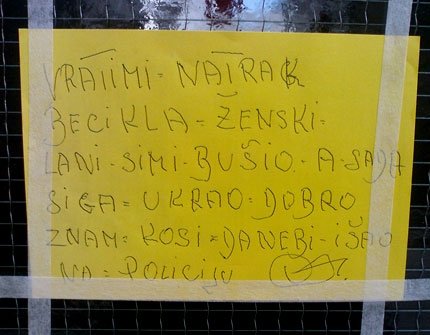 VRATIMI = NATRAK
BECIKLA = ŽENSKI =
LANI - SIMI - BUŠIO - A - SADA
SIGA = UKRAO = DOBRO
ZNAM = KOSI = DANEBI - IŠAO
NA = POLICIJU